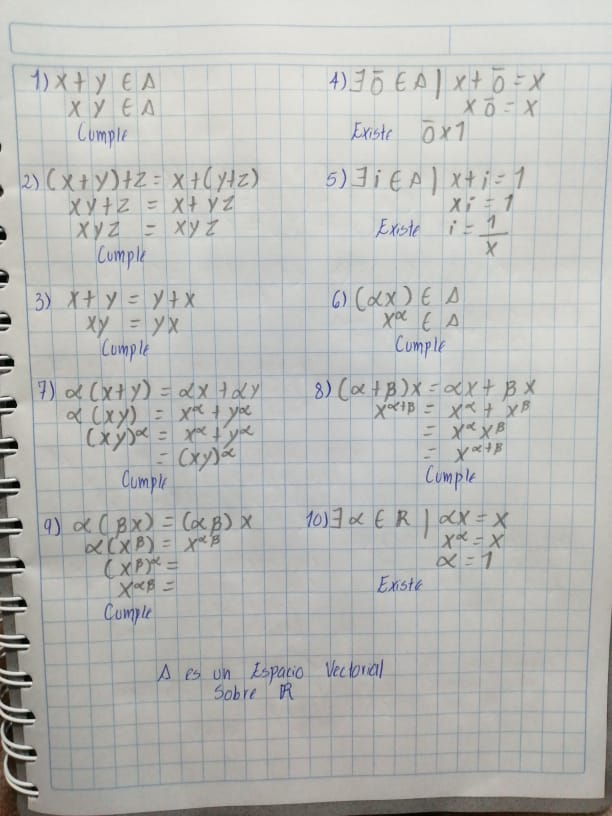 1) x + y ∈ Δ
x y ∈ Δ
Cumple
4) ∃ ō ∈ Δ | x + ō = x
x ō = x
Existe ō x 1
2) (x+y)+z = x+(y+z)
xy+z = x+yz
xyz = xyz
Cumple
5) ∃ i ∈ Δ | x + i = 1
x i = 1
Existe i = 1/x
3) x + y = y + x
xy = yx
Cumple
6) (αx) ∈ Δ
x^α ∈ Δ
Cumple
7) α(x+y) = αx + αy
α(xy) = x^α + y^α
(xy)^α = x^α + y^α
= (xy)^α
Cumple
8) (α+β)x = αx + βx
x^α+β = x^α + x^β
= x^α x^β
= x^α+β
Cumple
9) α(βx) = (αβ)x
α(x^β) = x^αβ
(x^β)^α =
x^αβ =
Cumple
10) ∃ α ∈ ℝ | αx = x
x^α = x
α = 1
Existe
Δ es un Espacio Vectorial
Sobre ℝ